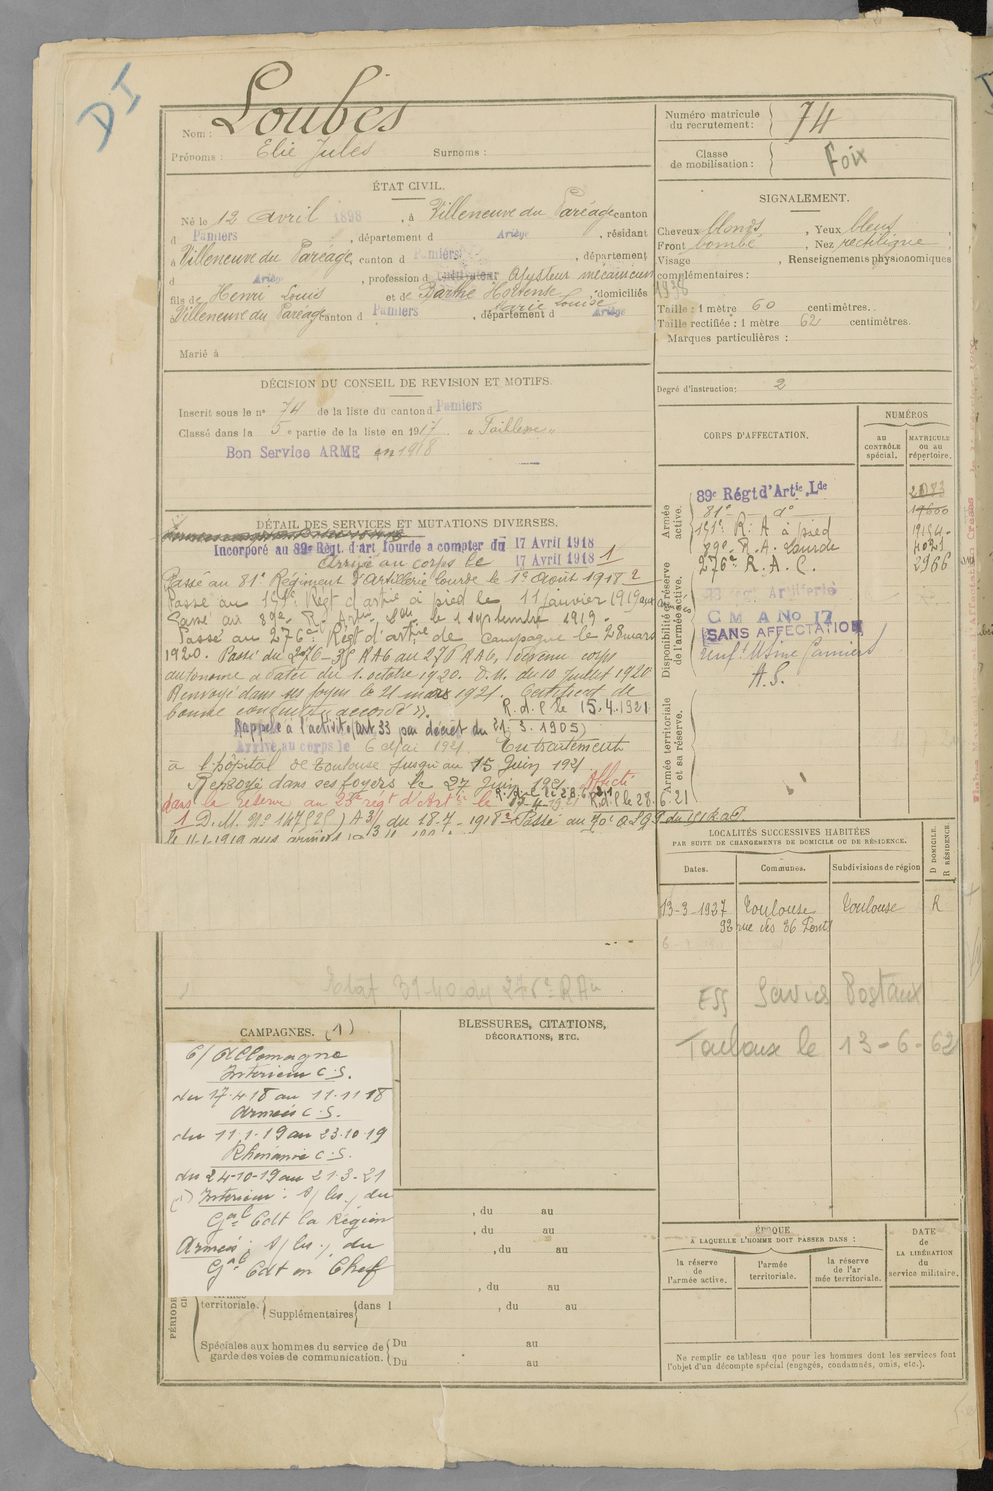 DI
Nom : Loubes
Prénoms : Elie Jules Surnoms :
ÉTAT CIVIL.
Né le 12 avril 1898, à Villeneuve du Paréage canton
d Pamiers, département d Ariège, résidant
à Villeneuve du Paréage, canton d Pamiers, département
d Ariège, profession d cultivateur Ajusteur mécanicien
fils de Henri Louis et de Barthe Hortense, domiciliés
Marie Louise
à Villeneuve du Paréage canton d Pamiers, département d Ariège
Marié à
DÉCISION DU CONSEIL DE REVISION ET MOTIFS.
Inscrit sous le n° 74 de la liste du canton d Pamiers
Classé dans la 5e partie de la liste en 1917 "Faiblesse"
Bon Service ARMÉ en 1918
DÉTAIL DES SERVICES ET MUTATIONS DIVERSES.
Incorporé au 89e Régt. d'art lourde a compter du 17 Avril 1918
Arrivé au corps le 17 Avril 1918 1
Passé au 81e Régiment d'Artillerie lourde le 1er août 1918 2
Passé au 151e Regt d'artie à pied le 11 janvier 1919
Passé au 89e R. Artie Lde le 1 septembre 1919.
Passé au 276e Régt d'artie de campagne le 28 mars
1920. Passé du 276-35 RAC au 276 RAC, devenu corps
autonome à dater du 1. octobre 1920. D.M. du 10 juillet 1920
Renvoyé dans ses foyers le 21 mars 1921. Certificat de
bonne conduite accordé ». R.d.C le 15.4.1921
Rappelé à l'activité (art 33 par décret du 21. 3. 1905)
Arrivé au corps le 6 Mai 1921. En traitement
à l'hôpital de Toulouse jusqu'au 15 Juin 1921
Renvoyé dans ses foyers le 27 Juin 1921 Affecté
dans la réserve au 23e régt d'Artie le 15-4-1921 R.d.C le 28.6.21
1 D.M. N° 14752 A3/ du 18-7-1918 2 Passé au 70e
le 11-1-1919 aux armées
Etat 39-40 du 276e RA
CAMPAGNES. (1)
C/ Allemagne
Intérieur C.S.
du 17-4-18 au 11-11-18
Armées C.S.
du 11-1-19 au 23-10-19
Rhénanie C.S.
du 24-10-19 au 21-3-21
(1) Intérieur : s/ les / du
Gal Cdt la Région
Armées : s/ les / du
Gal Cdt en Chef
BLESSURES, CITATIONS,
DÉCORATIONS, ETC.
, du au
, du au
, du au
, du au
territoriale. Supplémentaires dans l , du au
PÉRIODE
Spéciales aux hommes du service de
garde des voies de communication.
Du au
Du au
Numéro matricule
du recrutement : 74
Classe
de mobilisation : Foix
SIGNALEMENT.
Cheveux blonds, Yeux bleus,
Front bombé, Nez rectiligne,
Visage , Renseignements physionomiques
complémentaires :
1938
Taille : 1 mètre 60 centimètres.
Taille rectifiée : 1 mètre 62 centimètres.
Marques particulières :
Degré d'instruction: 2
CORPS D'AFFECTATION.
NUMÉROS
au
CONTRÔLE
spécial.
MATRICULE
ou au
répertoire.
Armée
active.
89e Régt d'Artie Lde
81e do 17600
151e R. A à pied 19154
89e R. A. Lourde 4029
276e R. A. C. 2966
Disponibilité et réserve
de l'armée active.
Artillerie
C M A No 17
SANS AFFECTATION
A.S.
Armée territoriale
et sa réserve.
LOCALITÉS SUCCESSIVES HABITÉES
PAR SUITE DE CHANGEMENTS DE DOMICILE OU DE RÉSIDENCE.
D DOMICILE.
R RÉSIDENCE.
Dates. Communes. Subdivisions de région
13-3-1927 Toulouse Toulouse R
92 rue des 36 Ponts
Ess Services Postaux
Toulouse le 13-6-62
ÉPOQUE
A LAQUELLE L'HOMME DOIT PASSER DANS :
la réserve
de
l'armée active.
l'armée
territoriale.
la réserve
de l'ar
mée territoriale.
DATE
de
LA LIBÉRATION
du
service militaire.
Ne remplir ce tableau que pour les hommes dont les services font
l'objet d'un décompte spécial (engagés, condamnés, omis, etc.).